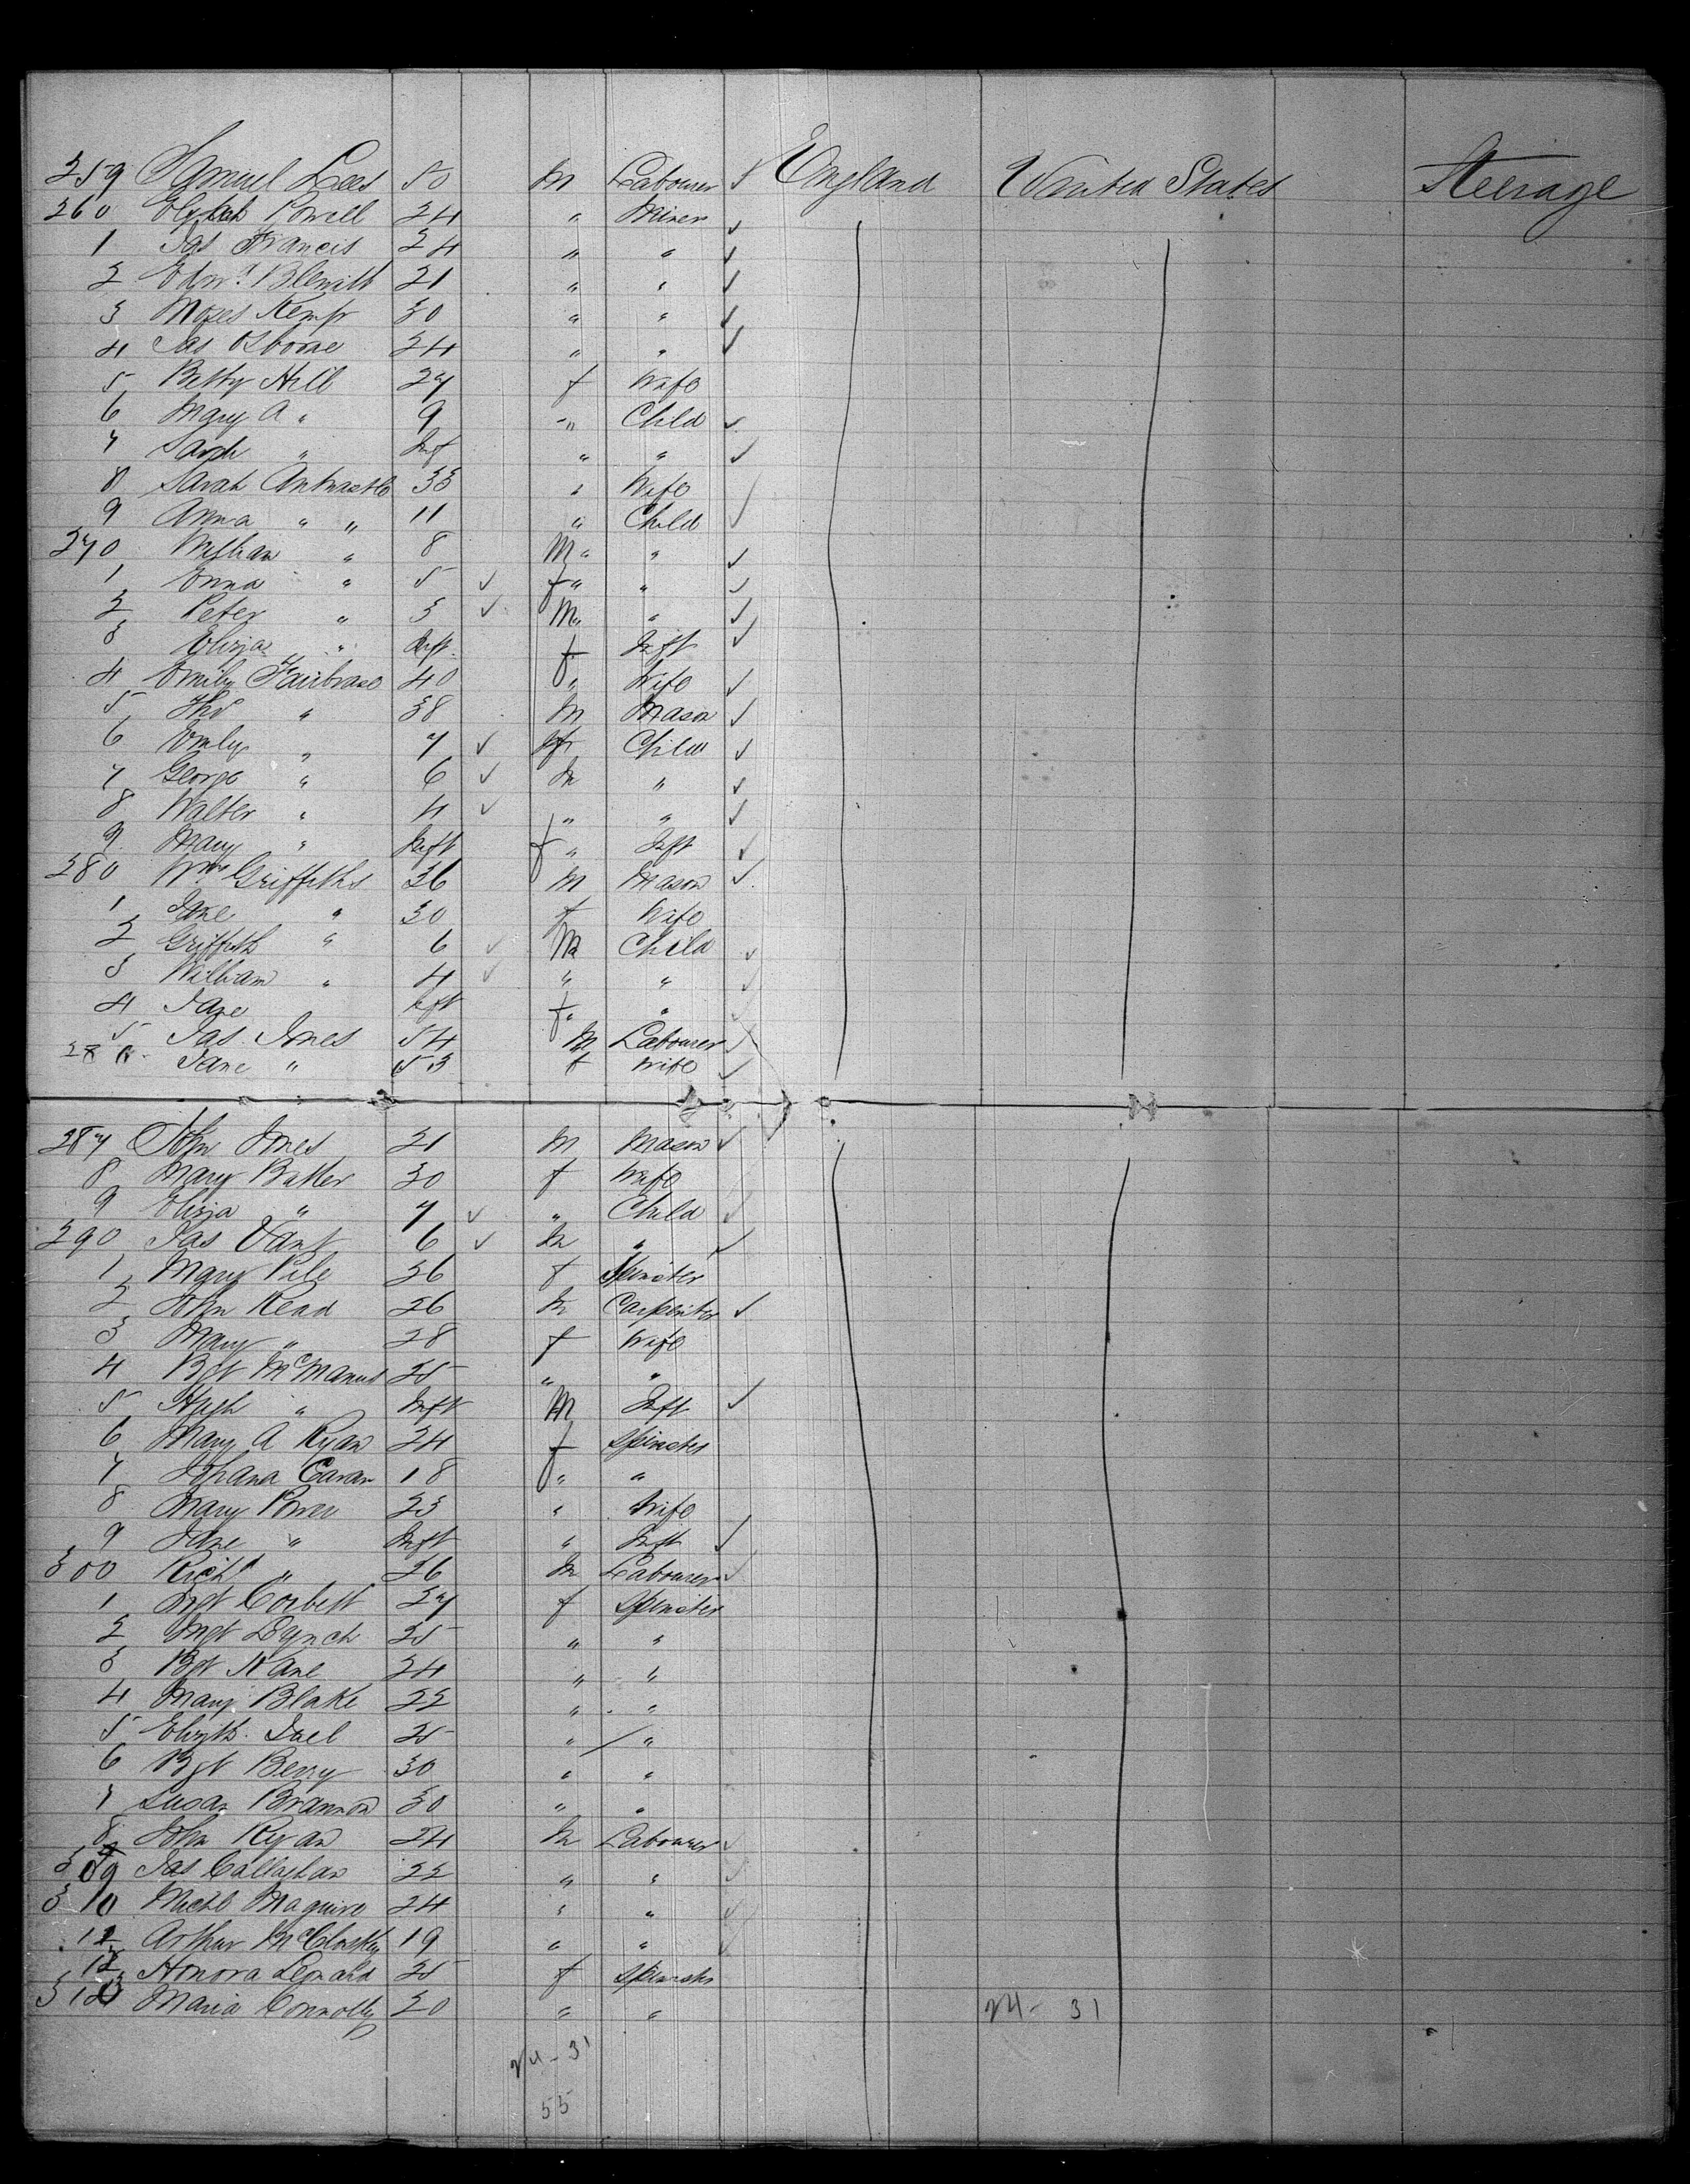 259 Samuel Lees 50 M Labourer England United States Steerage
260 Elijah Powell 24 " Miner
1 Jas Francis 24 " "
2 Edwd. Blewitt 21 " "
3 Moses Kemp 30 " "
4 Jas Osborne 24 " "
5 Betty Hill 27 f Wife
6 Mary A " 9 " Child
7 Sarah " Inft " "
8 Sarah 33 " Wife
9 Anna " " 11 " Child
270 William " 8 M " "
1 Emma " 5 f " "
2 Peter " 3 M " "
3 Eliza " Inft. f Inft
4 Emily Fairbrass 40 " Wife
5 Thos " 38 M Mason
6 Emily " 7 f Child
7 George " 6 M "
8 Walter " 4 " "
9 Mary " Inft f " Inft
280 Wm Griffiths 36 M Mason
1 Jane " 30 f Wife
2 Griffith " 6 M Child
3 William " 4 " "
4 Jane Inft f " "
5 Jas Jones 54 M Labourer
286 Jane " 53 f Wife
287 John Jones 21 M Mason
8 Mary Batter 30 f Wife
9 Eliza " 7 " Child
290 Jas Vant 6 M "
1 Mary Pile 36 f Spinster
2 John Read 26 M Carpenter
3 Mary " 28 f Wife
4 Bgt McManus 25 " "
5 Hugh " Inft M Inft
6 Mary A Ryan 24 f Spinster
7 Johana Cavan 18 " "
8 Mary Power 23 " Wife
9 Jane " Inft " Inft
300 Richd " 26 M Labourer
1 Mgt Corbett 27 f Spinster
2 Mgt Lynch 25 " "
3 Bgt Kane 24 " "
4 Mary Blake 22 " "
5 Elizth. 25 " "
6 Bgt Berry 30 " "
7 Susan Brannon 30 " "
8 John Ryan 24 M Labourer
309 Jas Callaghan 22 " "
310 Michl Maguire 24 " "
11 Arthur McCloskey 19 " "
12 Honora Leonard 25 f Spinster
313 Maria Connolly 20 " "
24 - 31
24 - 31
55